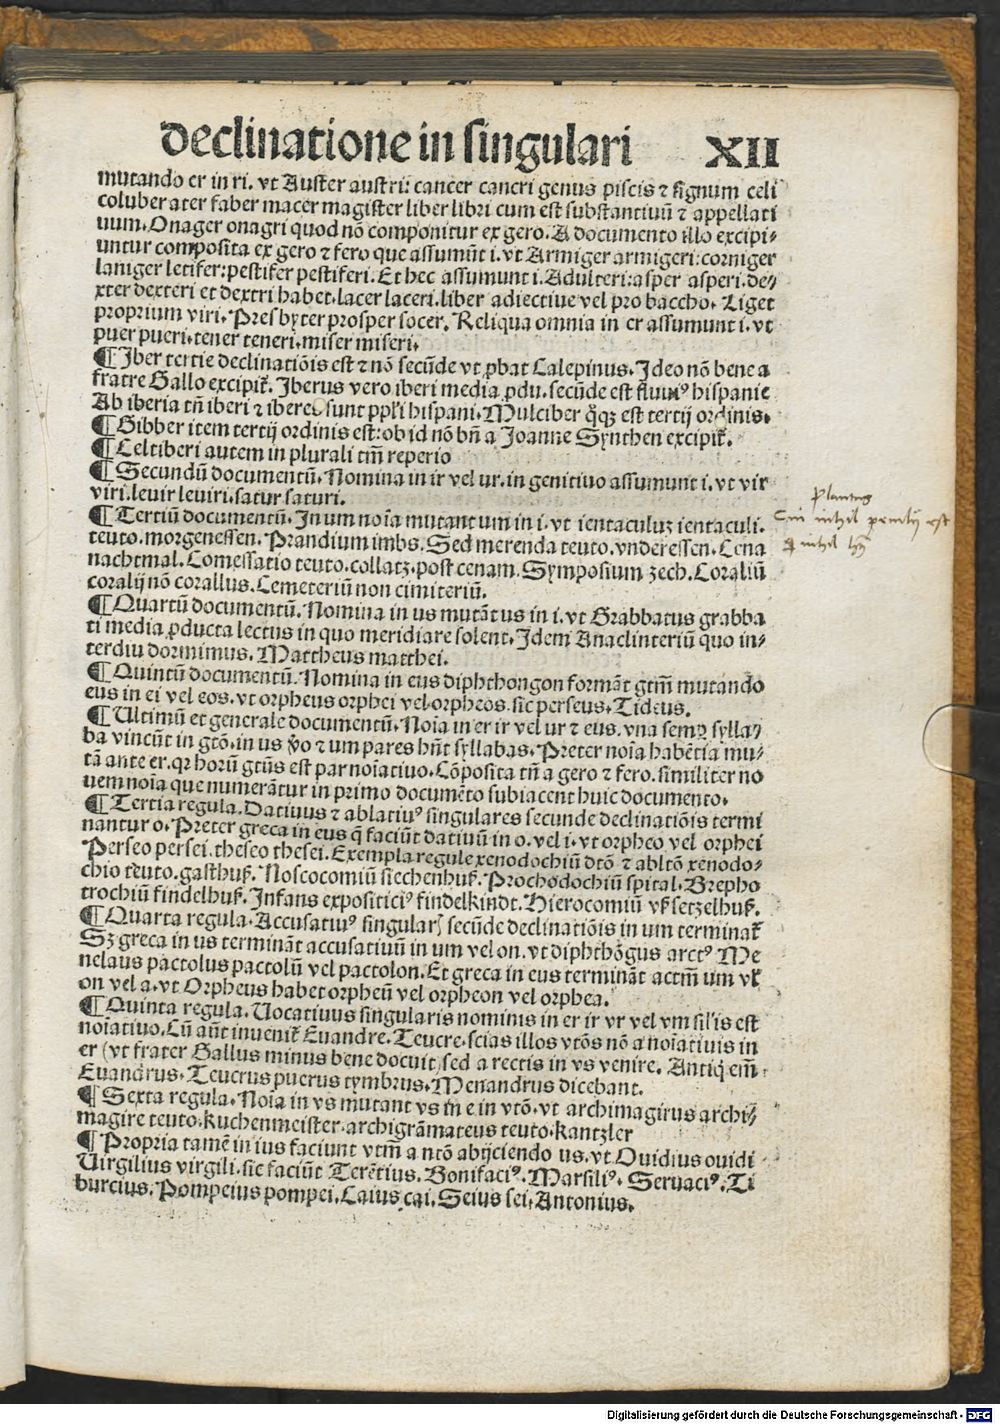 declinatione in singulari XII
mutando er in ri. vt Auster austri: cancer cancri genus piscis ⁊ signum celi
coluber ater faber macer magister liber libri cum est substantiuū ⁊ appellati
uum. Onager onagri quod nō componitur ex gero. A documento illo excipi⸗
untur composita ex gero ⁊ fero que assumūt i. vt Armiger armigeri: corniger
laniger letifer: pestifer pestiferi. Et hec assumunt i. Adulteri: asper asperi. de⸗
xter dexteri et dextri habet. lacer laceri. liber adiectiue vel pro baccho. Liger
proprium viri. Presbyter prosper socer. Reliqua omnia in er assumunt i. vt
puer pueri. tener teneri. miser miseri.
¶ Iber tertie declinatiōis est ⁊ nō secūde vt ꝓbat Calepinus. Ideo nō bene a
fratre Gallo excipit̄. Iberus vero iberi media ꝓdu. secūde est fluuiꝰ hispanie
Ab iberia tn̄ iberi ⁊ iberes sunt pp̄li hispani. Mulciber q̄q̨ est tertij ordinis.
¶ Gibber item tertij ordinis est: ob id nō bn̄ a Joanne Synthen excipit̄.
¶ Celtiberi autem in plurali tm̄ reperio
¶ Secundū documentū. Nomina in ir vel ur. in genitiuo assumunt i. vt vir
viri. leuir leuiri. satur saturi.
¶ Tertiū documentū. In um noīa mutant um in i. vt ientaculuꝫ ientaculi.
teuto. morgenessen. Prandium imbs. Sed merenda teuto. vnderessen. Cena
nachtmal. Comessatio teuto. collatz. post cenam. Symposium zech. Coraliū
coralij nō corallus. Cemeteriū non cimiteriū.
¶ Quartū documentū. Nomina in us mutāt us in i. vt Grabbatus grabba
ti media ꝓducta lectus in quo meridiare solent. Idem Anaclinteriū quo in⸗
terdiu dormimus. Mattheus matthei.
¶ Quintū documentū. Nomina in eus diphthongon formāt gtm̄ mutando
eus in ei vel eos. vt orpheus orphei vel orpheos. sic perseus. Tideus.
¶ Ultimū et generale documentū. Noīa in er ir vel ur ⁊ eus. vna semꝑ sylla⸗
ba vincūt in gtō. in us v̓o ⁊ um pares hn̄t syllabas. Preter noīa habētia mu⸗
tā ante er. qꝛ horū gtūs est par noīatiuo. Cōposita tn̄ a gero ⁊ fero. similiter no
uem noīa que numerātur in primo documēto subiacent huic documento.
¶ Tertia regula. Datiuus ⁊ ablatiuꝰ singulares secunde declinatiōis termi
nantur o. Preter greca in eus q̄ faciūt datiuū in o. vel i. vt orpheo vel orphei
Perseo persei. theseo thesei. Exempla regule xenodochiū dtō ⁊ abltō xenodo⸗
chio teuto. gasthuß. Noscocomiū siechenhuß. Prochodochiū spital. Brepho
trochiū findelhuß. Infans expositiciꝰ findelkindt. Hierocomiū vl̄ setzelhuß.
¶ Quarta regula. Accusatiuꝰ singularꝭ secūde declinatiōis in um terminat̄
Sꝫ greca in us termināt accusatiuū in um vel on. vt diphthōgus arctꝰ Me
nelaus pactolus pactolū vel pactolon. Et greca in eus termināt actm̄ um vl̄
on vel a. vt Orpheus habet orpheū vel orpheon vel orphea.
¶ Quinta regula. Uocatiuus singularis nominis in er ir vr vel vm sil̓is est
noīatiuo. Cū aūt inuenit̄ Euandre. Teucre. scias illos vtōs nō a noīatiuis in
er (vt frater Gallus minus bene docuit) sed a rectis in vs venire. Antiq̓ em̄
Euandrus. Teucrus puerus tymbrus. Menandrus dicebant.
¶ Sexta regula. Noīa in vs mutant vs in e in vtō. vt archimagirus archi⸗
magire teuto. kuchenmeister. archigrāmateus teuto. kantzler
¶ Propria tamē in ius faciunt vtm̄ a ntō abijciendo us. vt Ouidius ouidi
Uirgilius virgili. sic faciūt Terētius. Bonifaciꝰ. Marsiliꝰ. Seruaciꝰ. Ti
burcius. Pompeius pompei. Caius cai. Seius sei. Antonius.
Digitalisierung gefördert durch die Deutsche Forschungsgemeinschaft - DFG